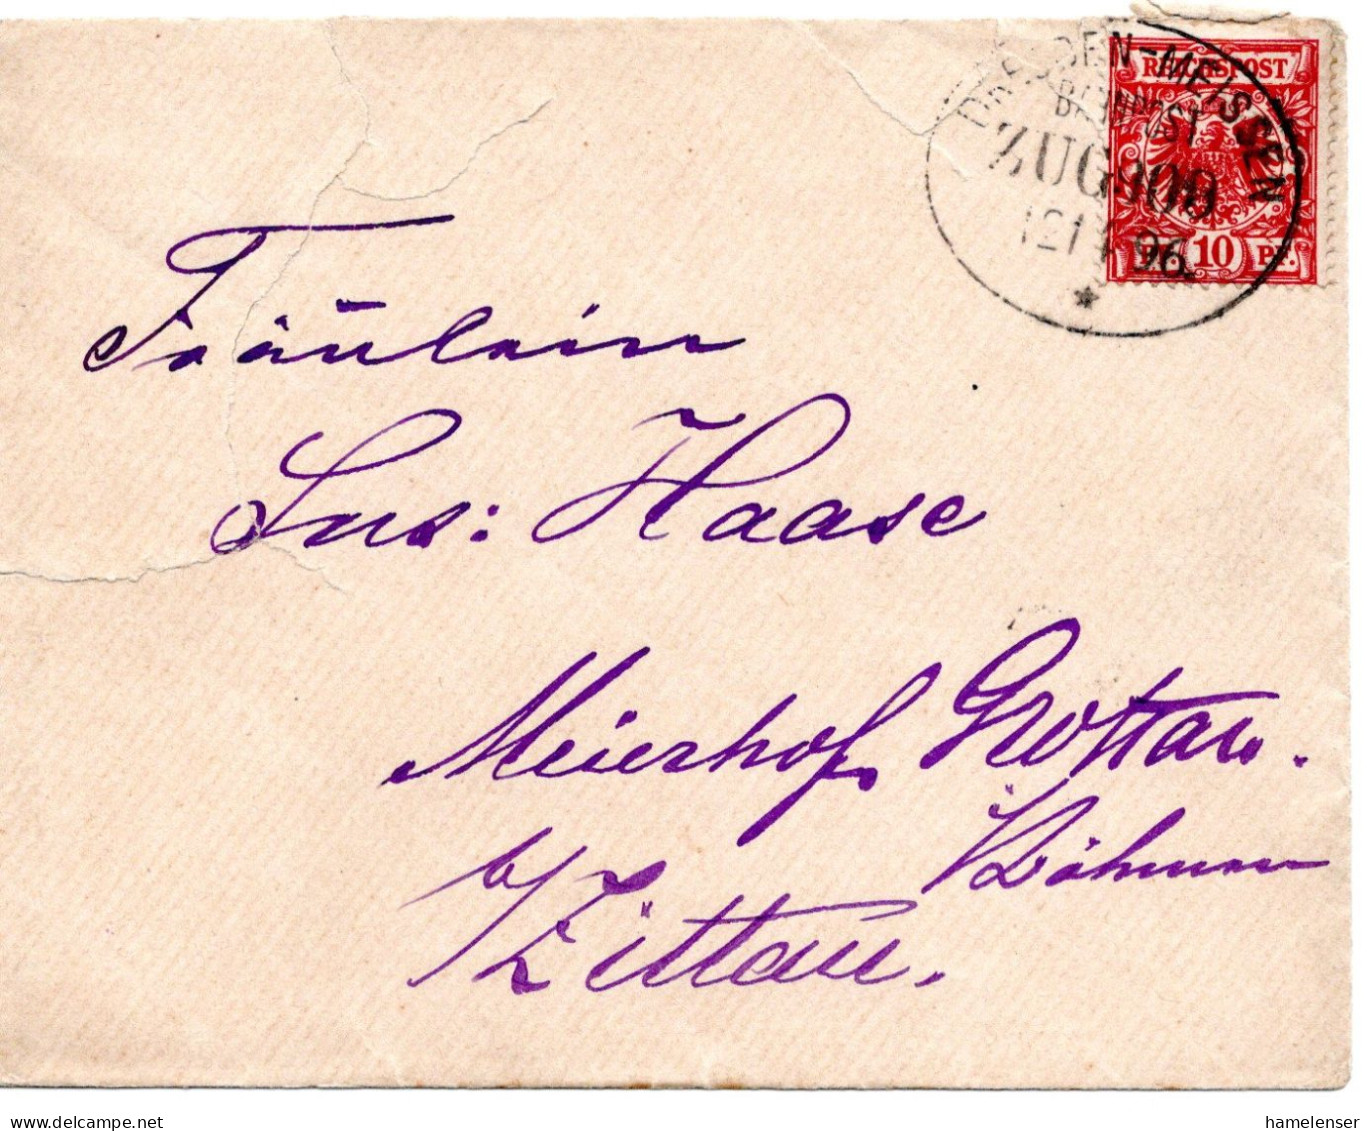 DRESDEN-MEISSEN
BAHNPOST
ZUG 900
96.
REICHSPOST
PF. 10 PF.
Fräulein
Sus: Haase
Meierhof Grottau.
i/Böhmen
b/Zittau.
delcampe.net
hamelenser